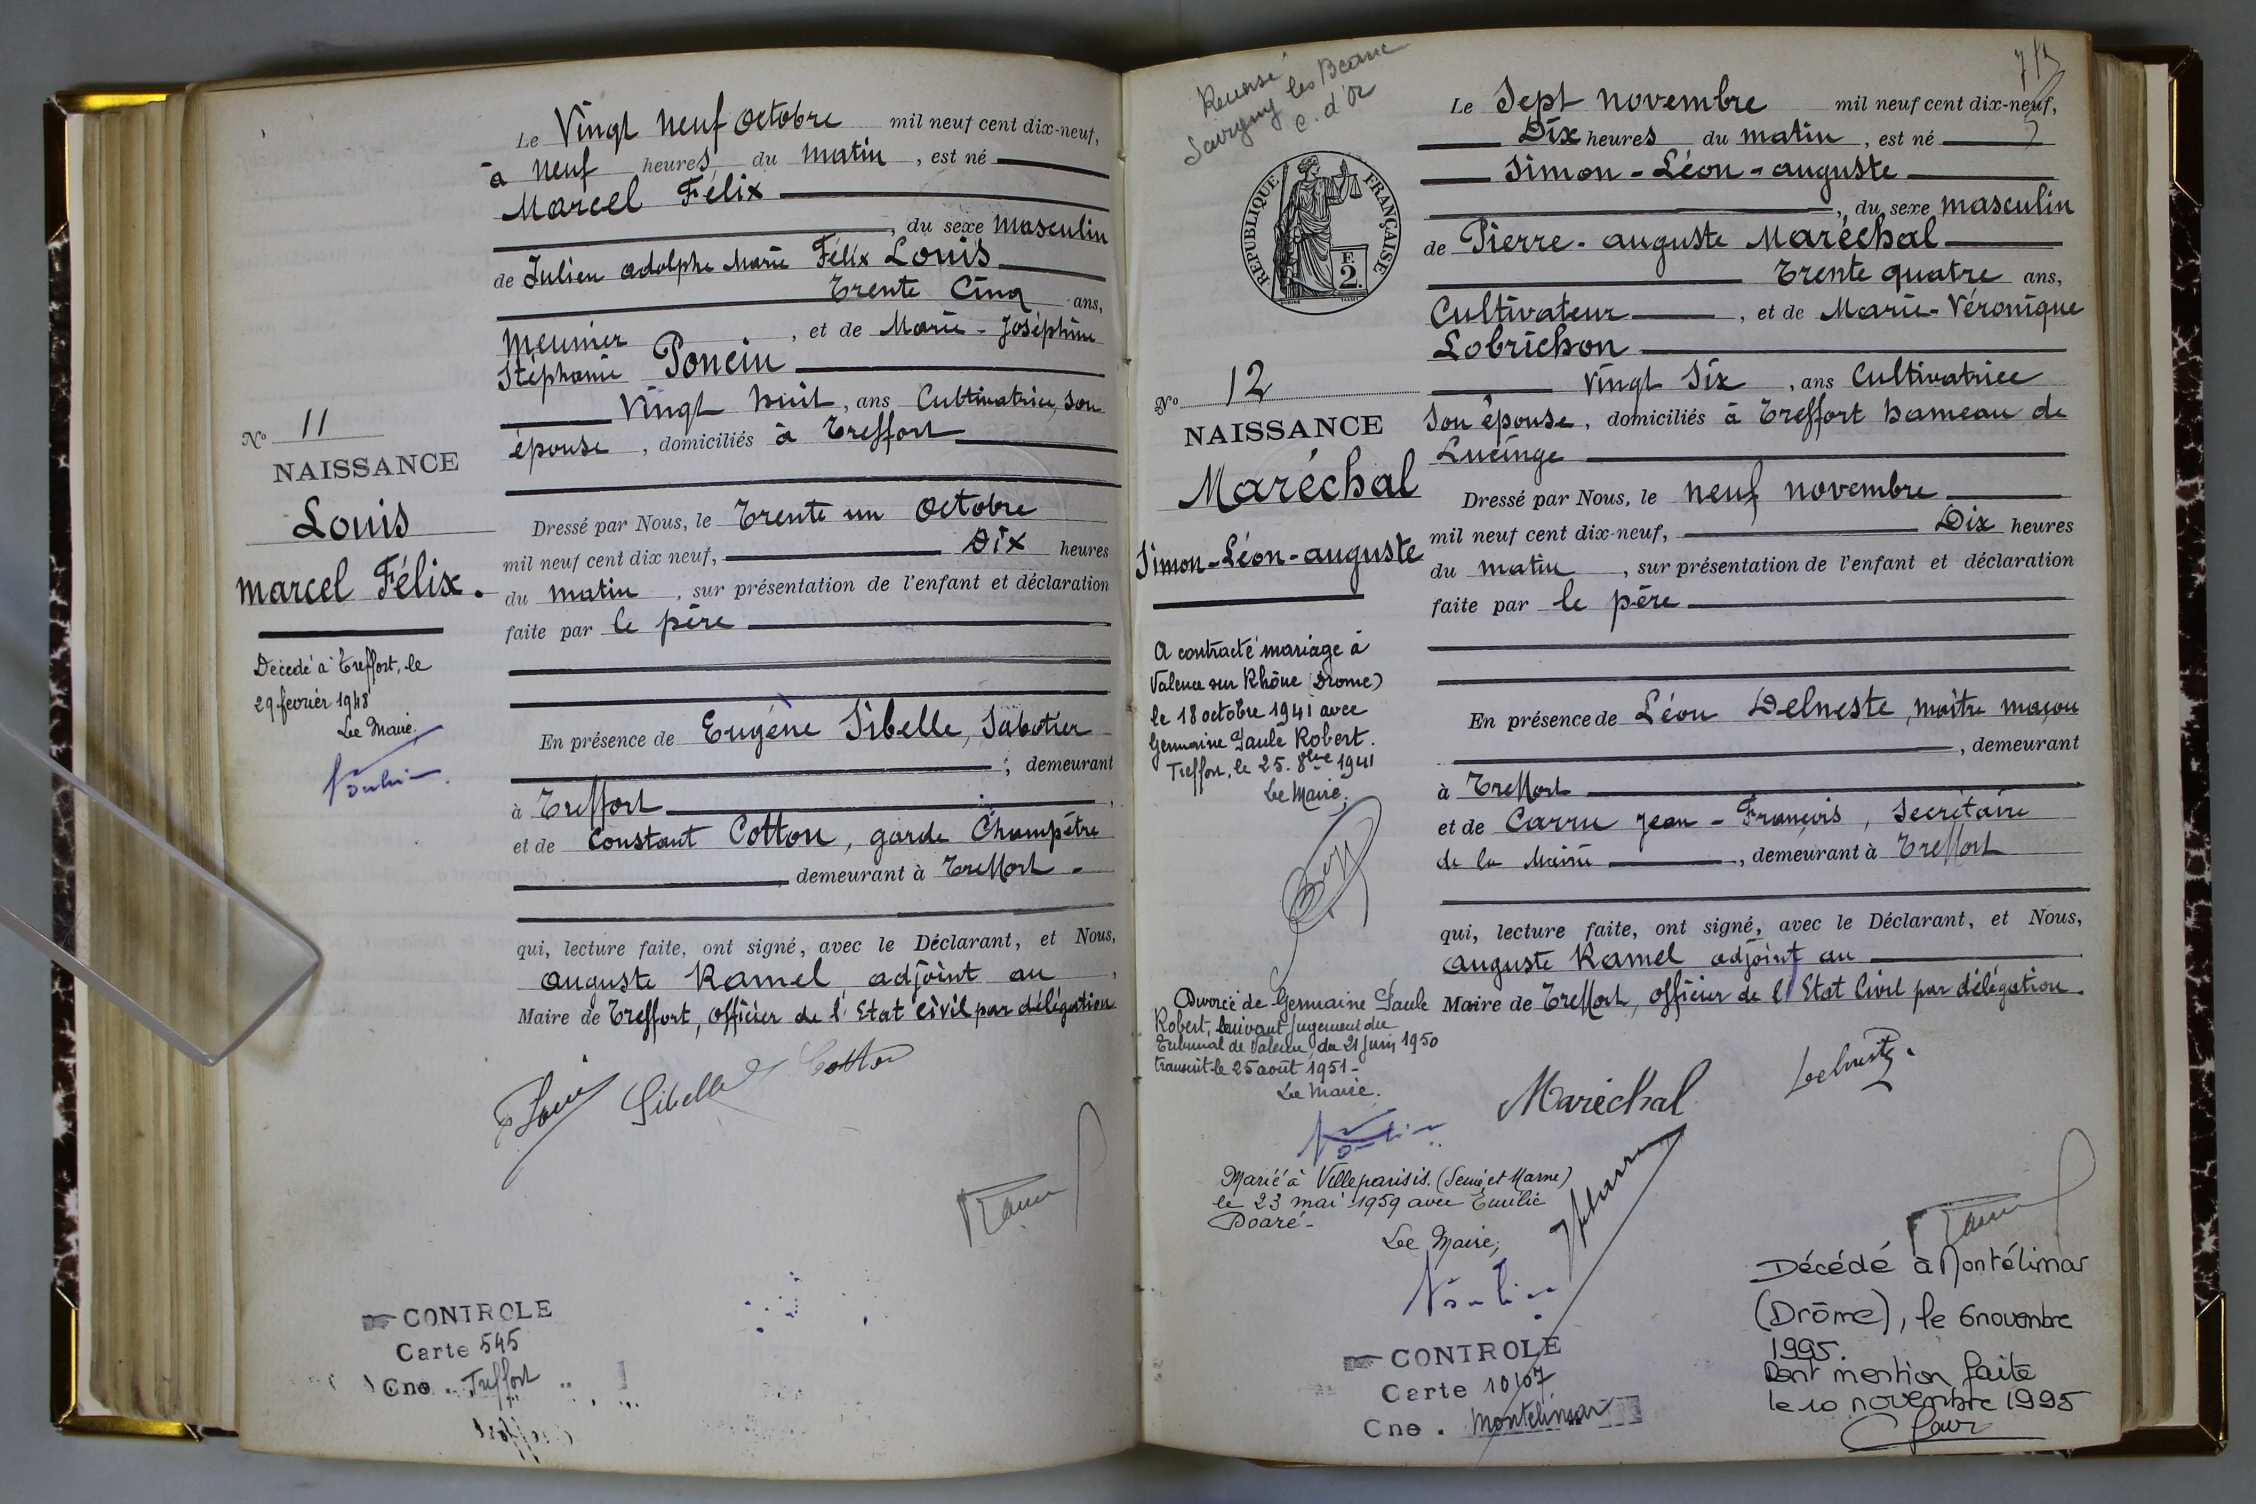 Le Vingt neuf octobre mil neuf cent dix-neuf,
à neuf heures du matin, est né
Marcel Félix
, du sexe masculin
de Julien adolphe Marie Félix Louis
Trente Cinq ans,
meunier, et de Marie-Joséphine
Stéphanie Poncin
Vingt huit, ans Cultivatrice, son
épouse, domiciliés à Treffort
No 11
NAISSANCE
Louis
marcel Félix.
Décédé à Treffort, le
29 fevrier 1948
Le Maire.
Dressé par Nous, le Trente un octobre
mil neuf cent dix neuf, Dix heures
du matin, sur présentation de l'enfant et déclaration
faite par le père
En présence de Eugène Sibelle, Sabotier
; demeurant
à Treffort,
et de Constant Cotton, garde Champêtre
, demeurant à Treffort -
qui, lecture faite, ont signé, avec le Déclarant, et Nous,
auguste Ramel adjoint au,
Maire de Treffort, officier de l'Etat civil par délégation
F Louis Sibelle Cotton
Ramel
CONTROLE
Carte 545
Cne. Treffort
Savigny les Beaune
C. d'Or
REPUBLIQUE FRANÇAISE
F.
2.
Le Sept novembre mil neuf cent dix-neuf,
Dix heures du matin, est né
Simon-Léon-auguste
, du sexe masculin
de Pierre-auguste Maréchal
Trente quatre ans,
Cultivateur, et de Marie-Véronique
Lobrichon
Vingt Six, ans Cultivatrice
Son épouse, domiciliés à Treffort hameau de
Lucinge
No 12
NAISSANCE
Maréchal
Simon-Léon-auguste
A contracté mariage à
Valence sur Rhône (Drome)
le 18 octobre 1941 avec
Germaine Paule Robert.
Treffort, le 25. 8bre 1941
Le Maire,
Divorcé de Germaine Paule
Robert, suivant jugement du
Tribunal de Valence du 21 juin 1950
transcrit le 25 août 1951-
Le Maire.
Marié à Villeparisis (Seine et Marne)
le 23 mai 1959 avec Emilie
Doaré-
Le Maire,
Dressé par Nous, le neuf novembre
mil neuf cent dix-neuf, Dix heures
du matin, sur présentation de l'enfant et déclaration
faite par le père
En présence de Léon Delneste, maître maçon
, demeurant
à Treffort
et de Carru Jean-François, Secrétaire
de la Mairie, demeurant à Treffort
qui, lecture faite, ont signé, avec le Déclarant, et Nous,
auguste Ramel adjoint au
Maire de Treffort, officier de l'Etat Civil par délégation.
Maréchal
Ramel
CONTROLE
Carte 10107
Cne. Montélimar
Décédé à Montélimar
(Drôme), le 6 novembre
1995.
Dont mention faite
le 10 novembre 1995